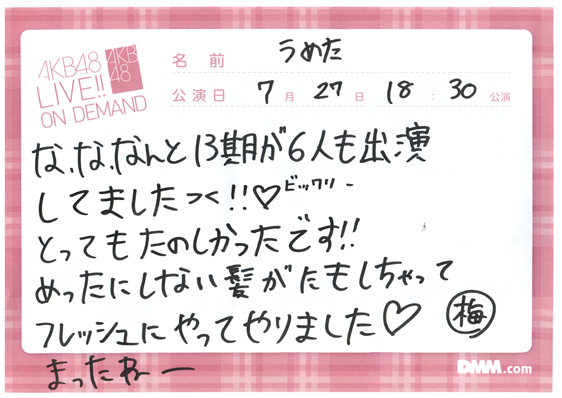 AKB48
LIVE!!
ON DEMAND
AKB
48
名前 うめた
公演日 7月27日 18:30公演
な、な、なんと13期が6人も出演
してましたっ!!♡ビックリー
とってもたのしかったです!!
めったにしない髪がたもしちゃって
フレッシュにやってやりました♡ 梅
まったねー
DMM.com